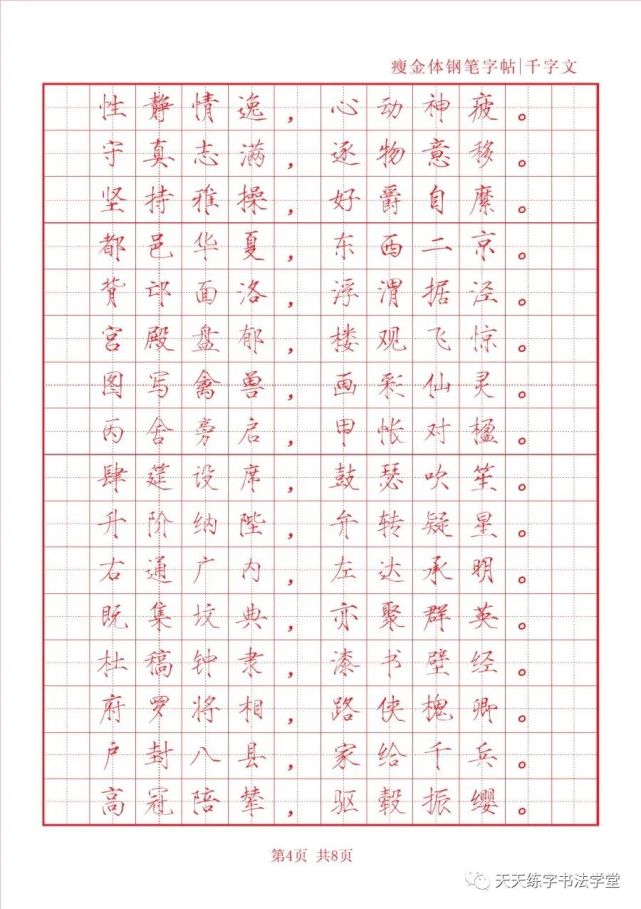 瘦金体钢笔字帖|千字文
性静情逸，心动神疲。
守真志满，逐物意移。
坚持雅操，好爵自縻。
都邑华夏，东西二京。
背邙面洛，浮渭据泾。
宫殿盘郁，楼观飞惊。
图写禽兽，画彩仙灵。
丙舍旁启，甲帐对楹。
肆筵设席，鼓瑟吹笙。
升阶纳陛，弁转疑星。
右通广内，左达承明。
既集坟典，亦聚群英。
杜稿钟隶，漆书壁经。
府罗将相，路侠槐卿。
户封八县，家给千兵。
高冠陪辇，驱毂振缨。
第4页 共8页
天天练字书法学堂